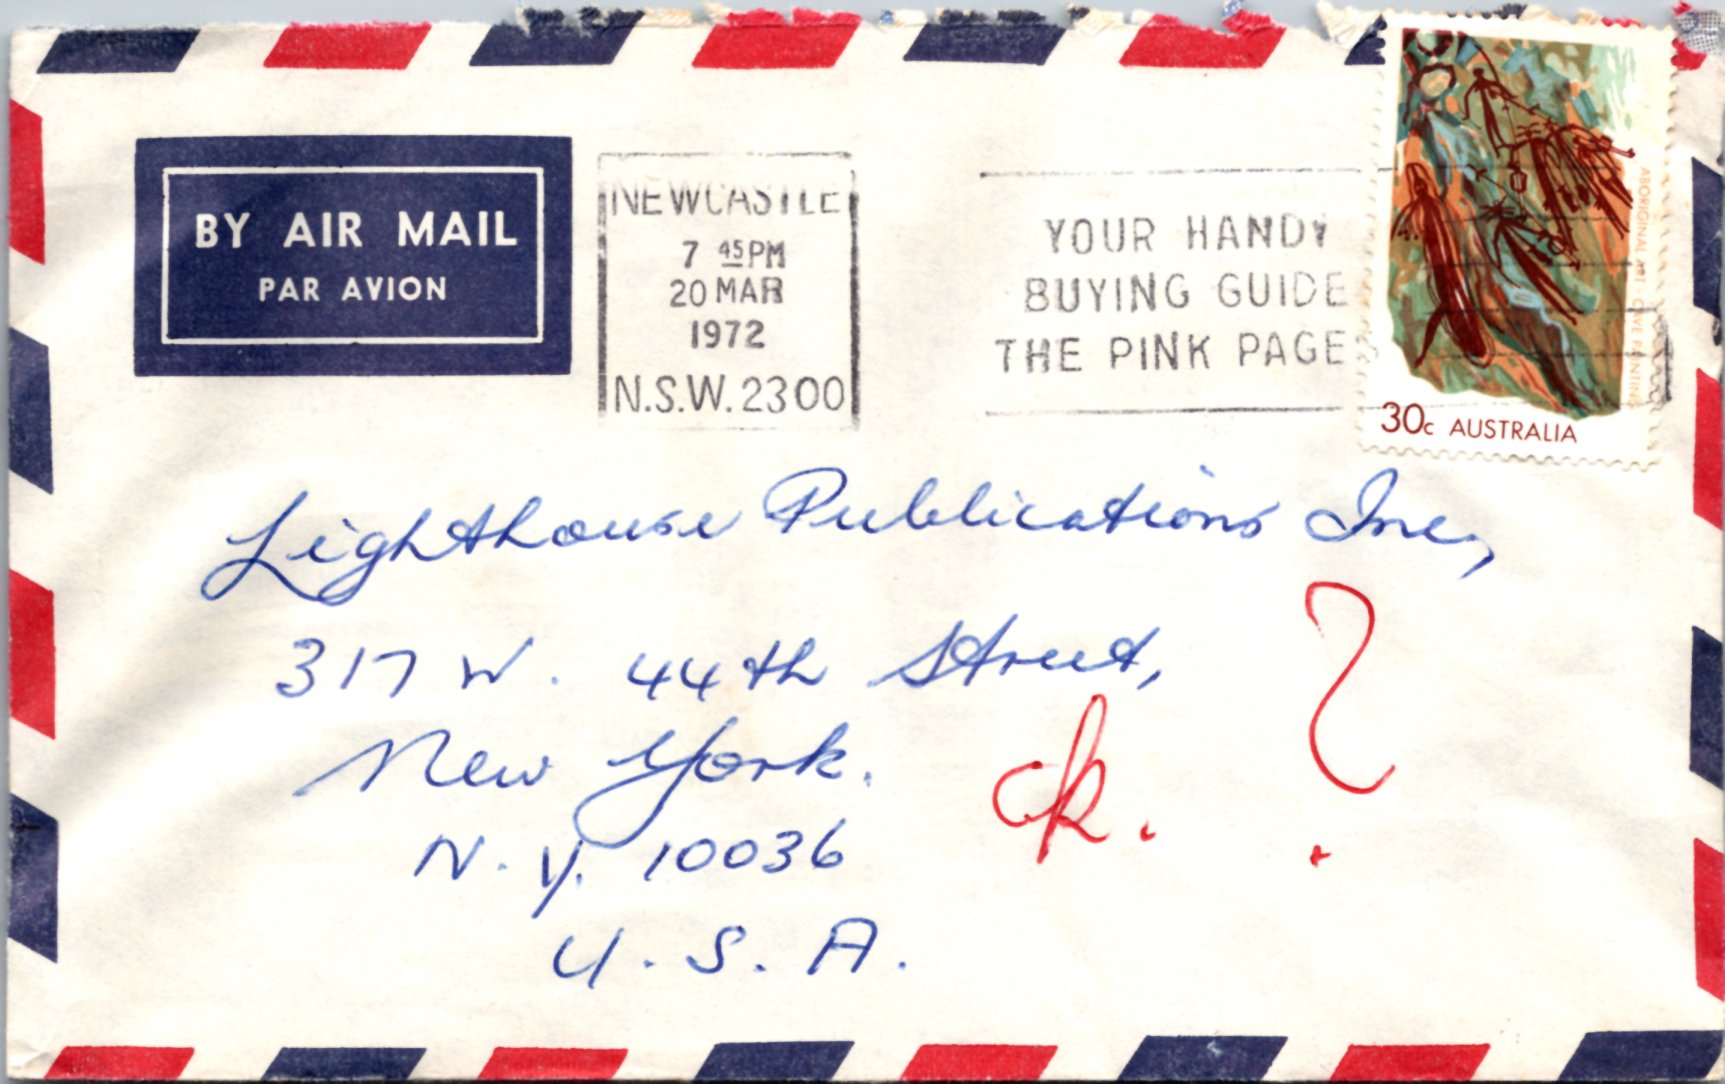 BY AIR MAIL
PAR AVION
NEWCASTLE
7 45PM
20 MAR
1972
N.S.W. 2300
YOUR HANDY
BUYING GUIDE
THE PINK PAGES
ABORIGINAL ART CAVE PAINTING
30c AUSTRALIA
Lighthouse Publications Inc,
317 W. 44th Street,
New York.
N.Y. 10036
U.S.A.
ck. ?